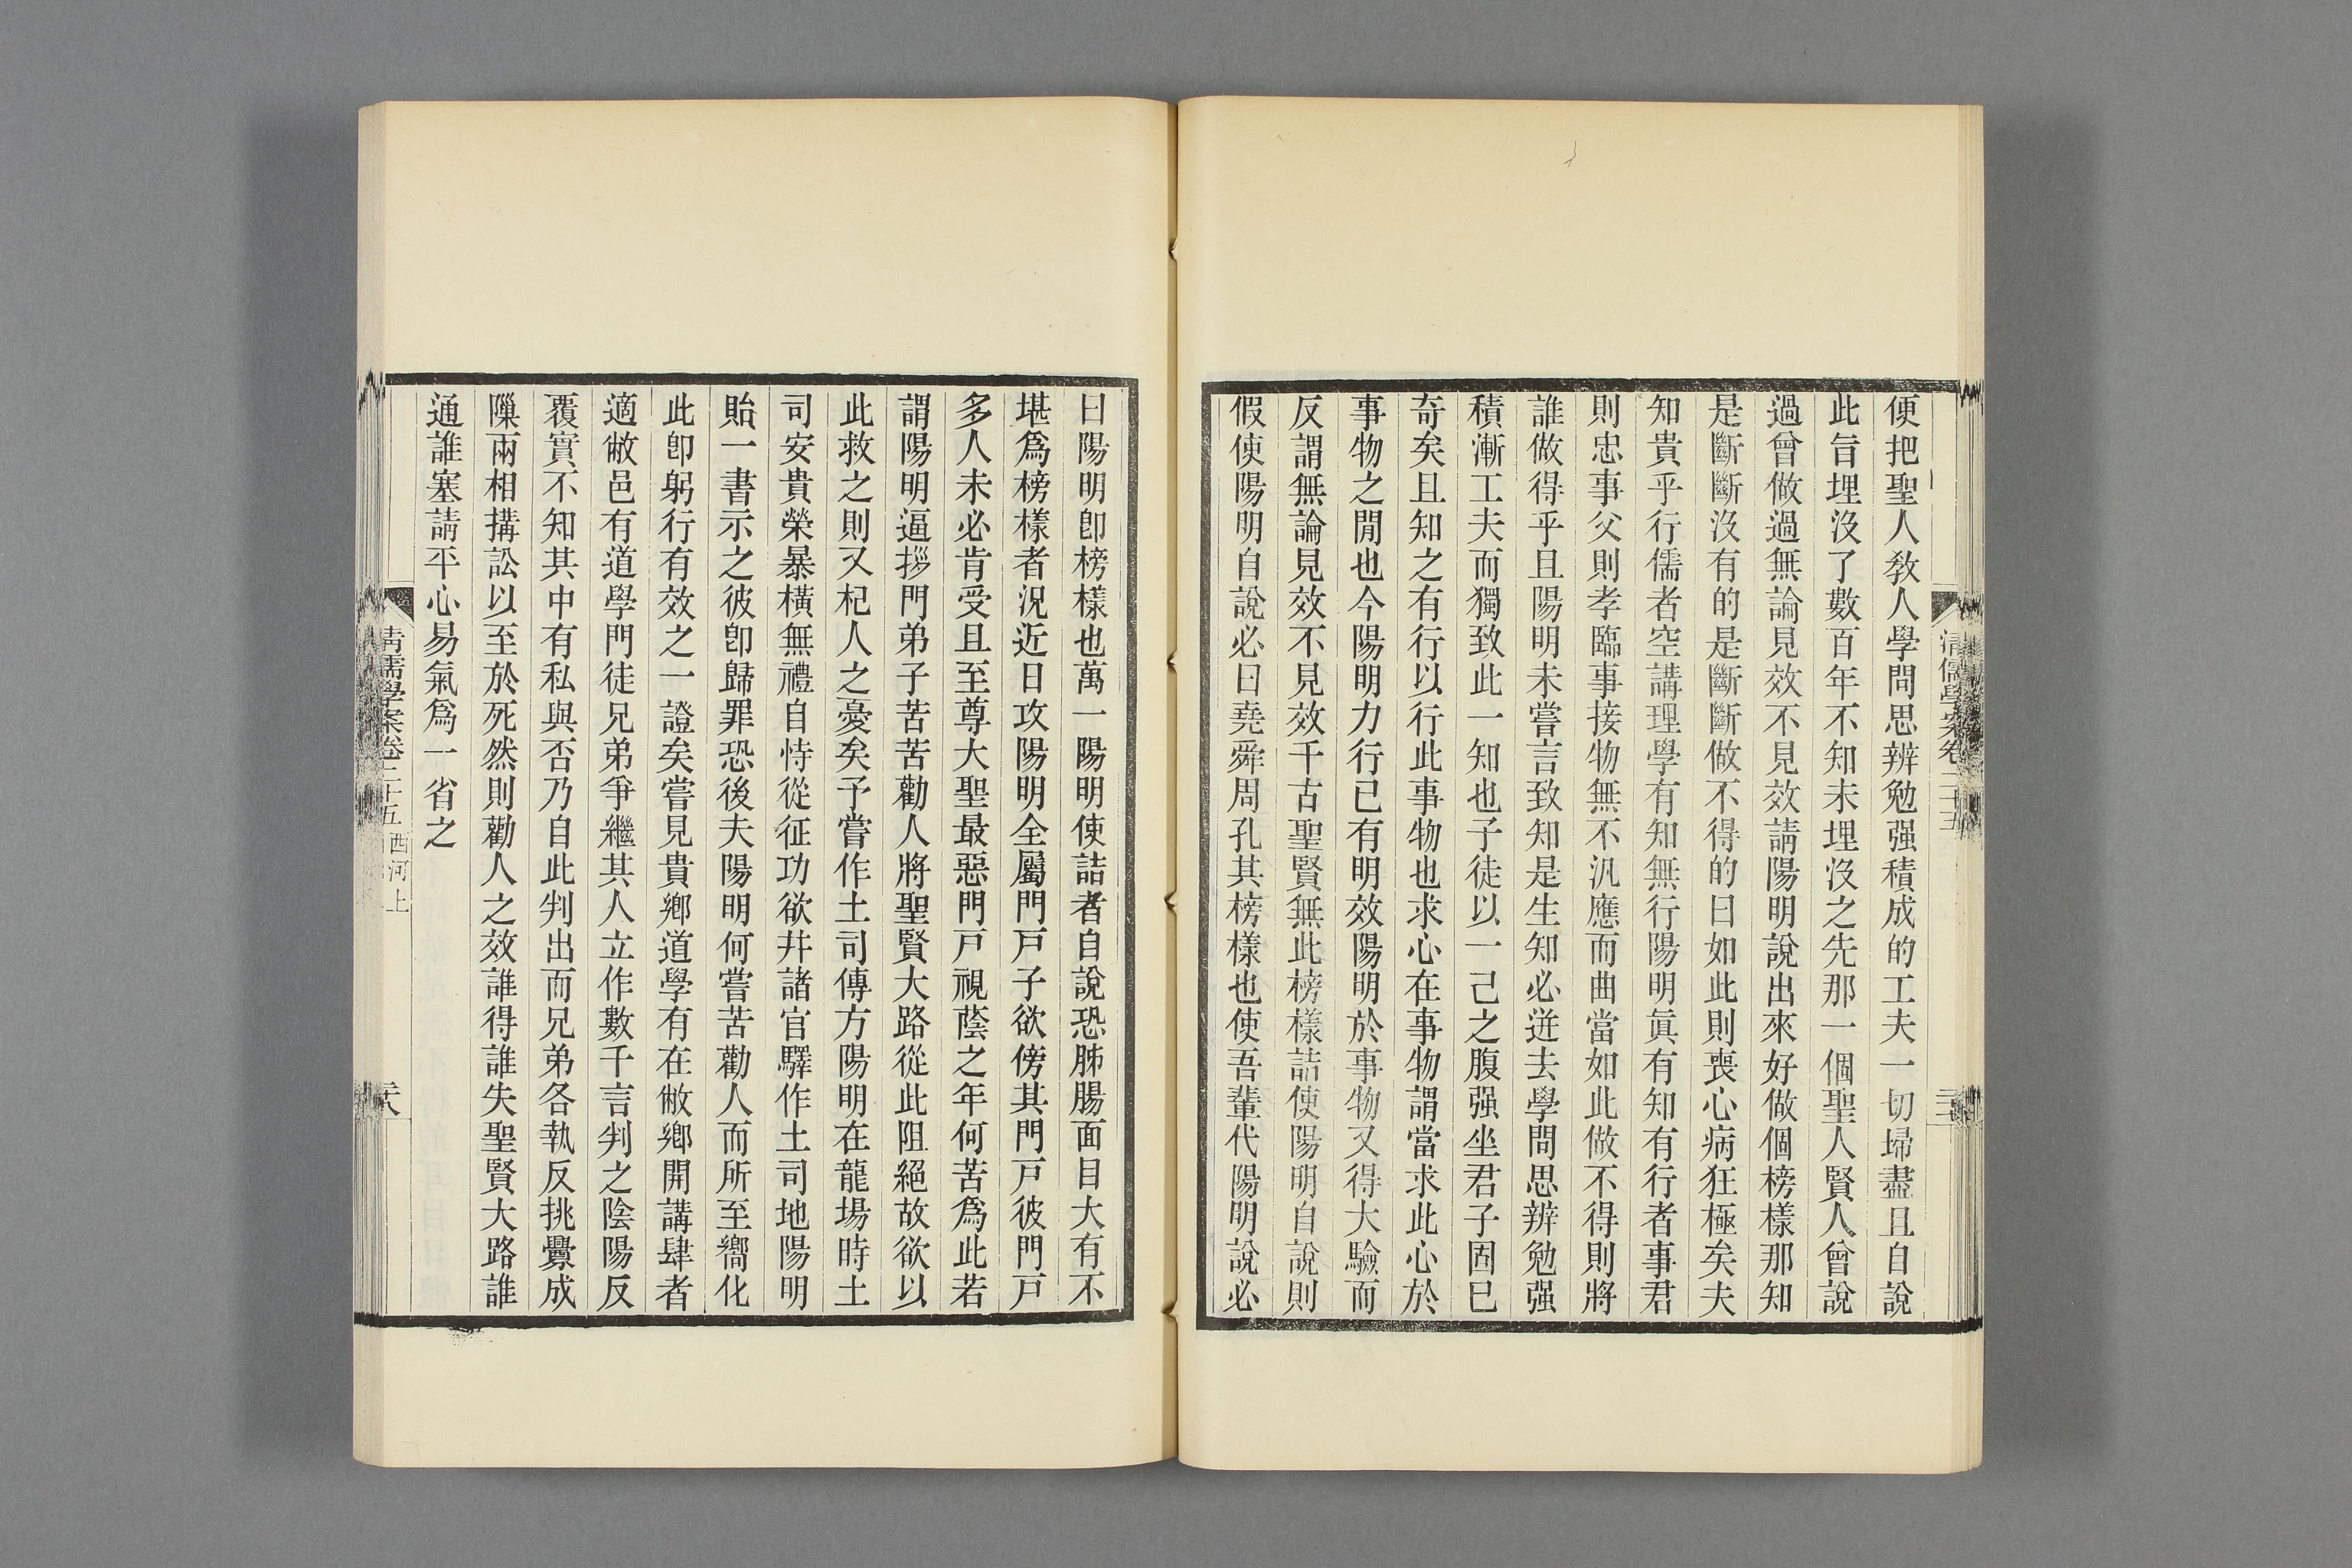 便把聖人敎人學問思辨勉强積成的工夫一切埽盡且自說
此旨埋沒了數百年不知未埋沒之先那一個聖人賢人曾說
過曾做過無論見效不見效請陽明說出來好做個榜樣那知
是斷斷沒有的是斷斷做不得的曰如此則喪心病狂極矣夫
知貴乎行儒者空講理學有知無行陽明眞有知有行者事君
則忠事父則孝臨事接物無不汎應而曲當如此做不得則將
誰做得乎且陽明未嘗言致知是生知必迸去學問思辨勉强
積漸工夫而獨致此一知也子徒以一己之腹强坐君子固已
奇矣且知之有行以行此事物也求心在事物謂當求此心於
事物之閒也今陽明力行已有明效陽明於事物又得大驗而
反謂無論見效不見效千古聖賢無此榜樣詰使陽明自說則
假使陽明自說必曰堯舜周孔其榜樣也使吾輩代陽明說必
清儒學案卷二十五
曰陽明卽榜樣也萬一陽明使詰者自說恐肺腸面目大有不
堪爲榜樣者況近日攻陽明全屬門戸子欲傍其門戸彼門戸
多人未必肯受且至尊大聖最惡門戸視蔭之年何苦爲此若
謂陽明逼拶門弟子苦苦勸人將聖賢大路從此阻絕故欲以
此救之則又杞人之憂矣予嘗作土司傳方陽明在龍場時土
司安貴榮暴橫無禮自恃從征功欲幷諸官驛作土司地陽明
貽一書示之彼卽歸罪恐後夫陽明何嘗苦勸人而所至嚮化
此卽躬行有效之一證矣嘗見貴鄕道學有在敝鄕開講肆者
適敝邑有道學門徒兄弟爭繼其人立作數千言判之陰陽反
覆實不知其中有私與否乃自此判出而兄弟各執反挑釁成
隟兩相搆訟以至於死然則勸人之效誰得誰失聖賢大路誰
通誰塞請平心易氣爲一省之
清儒學案卷二十五 西河上